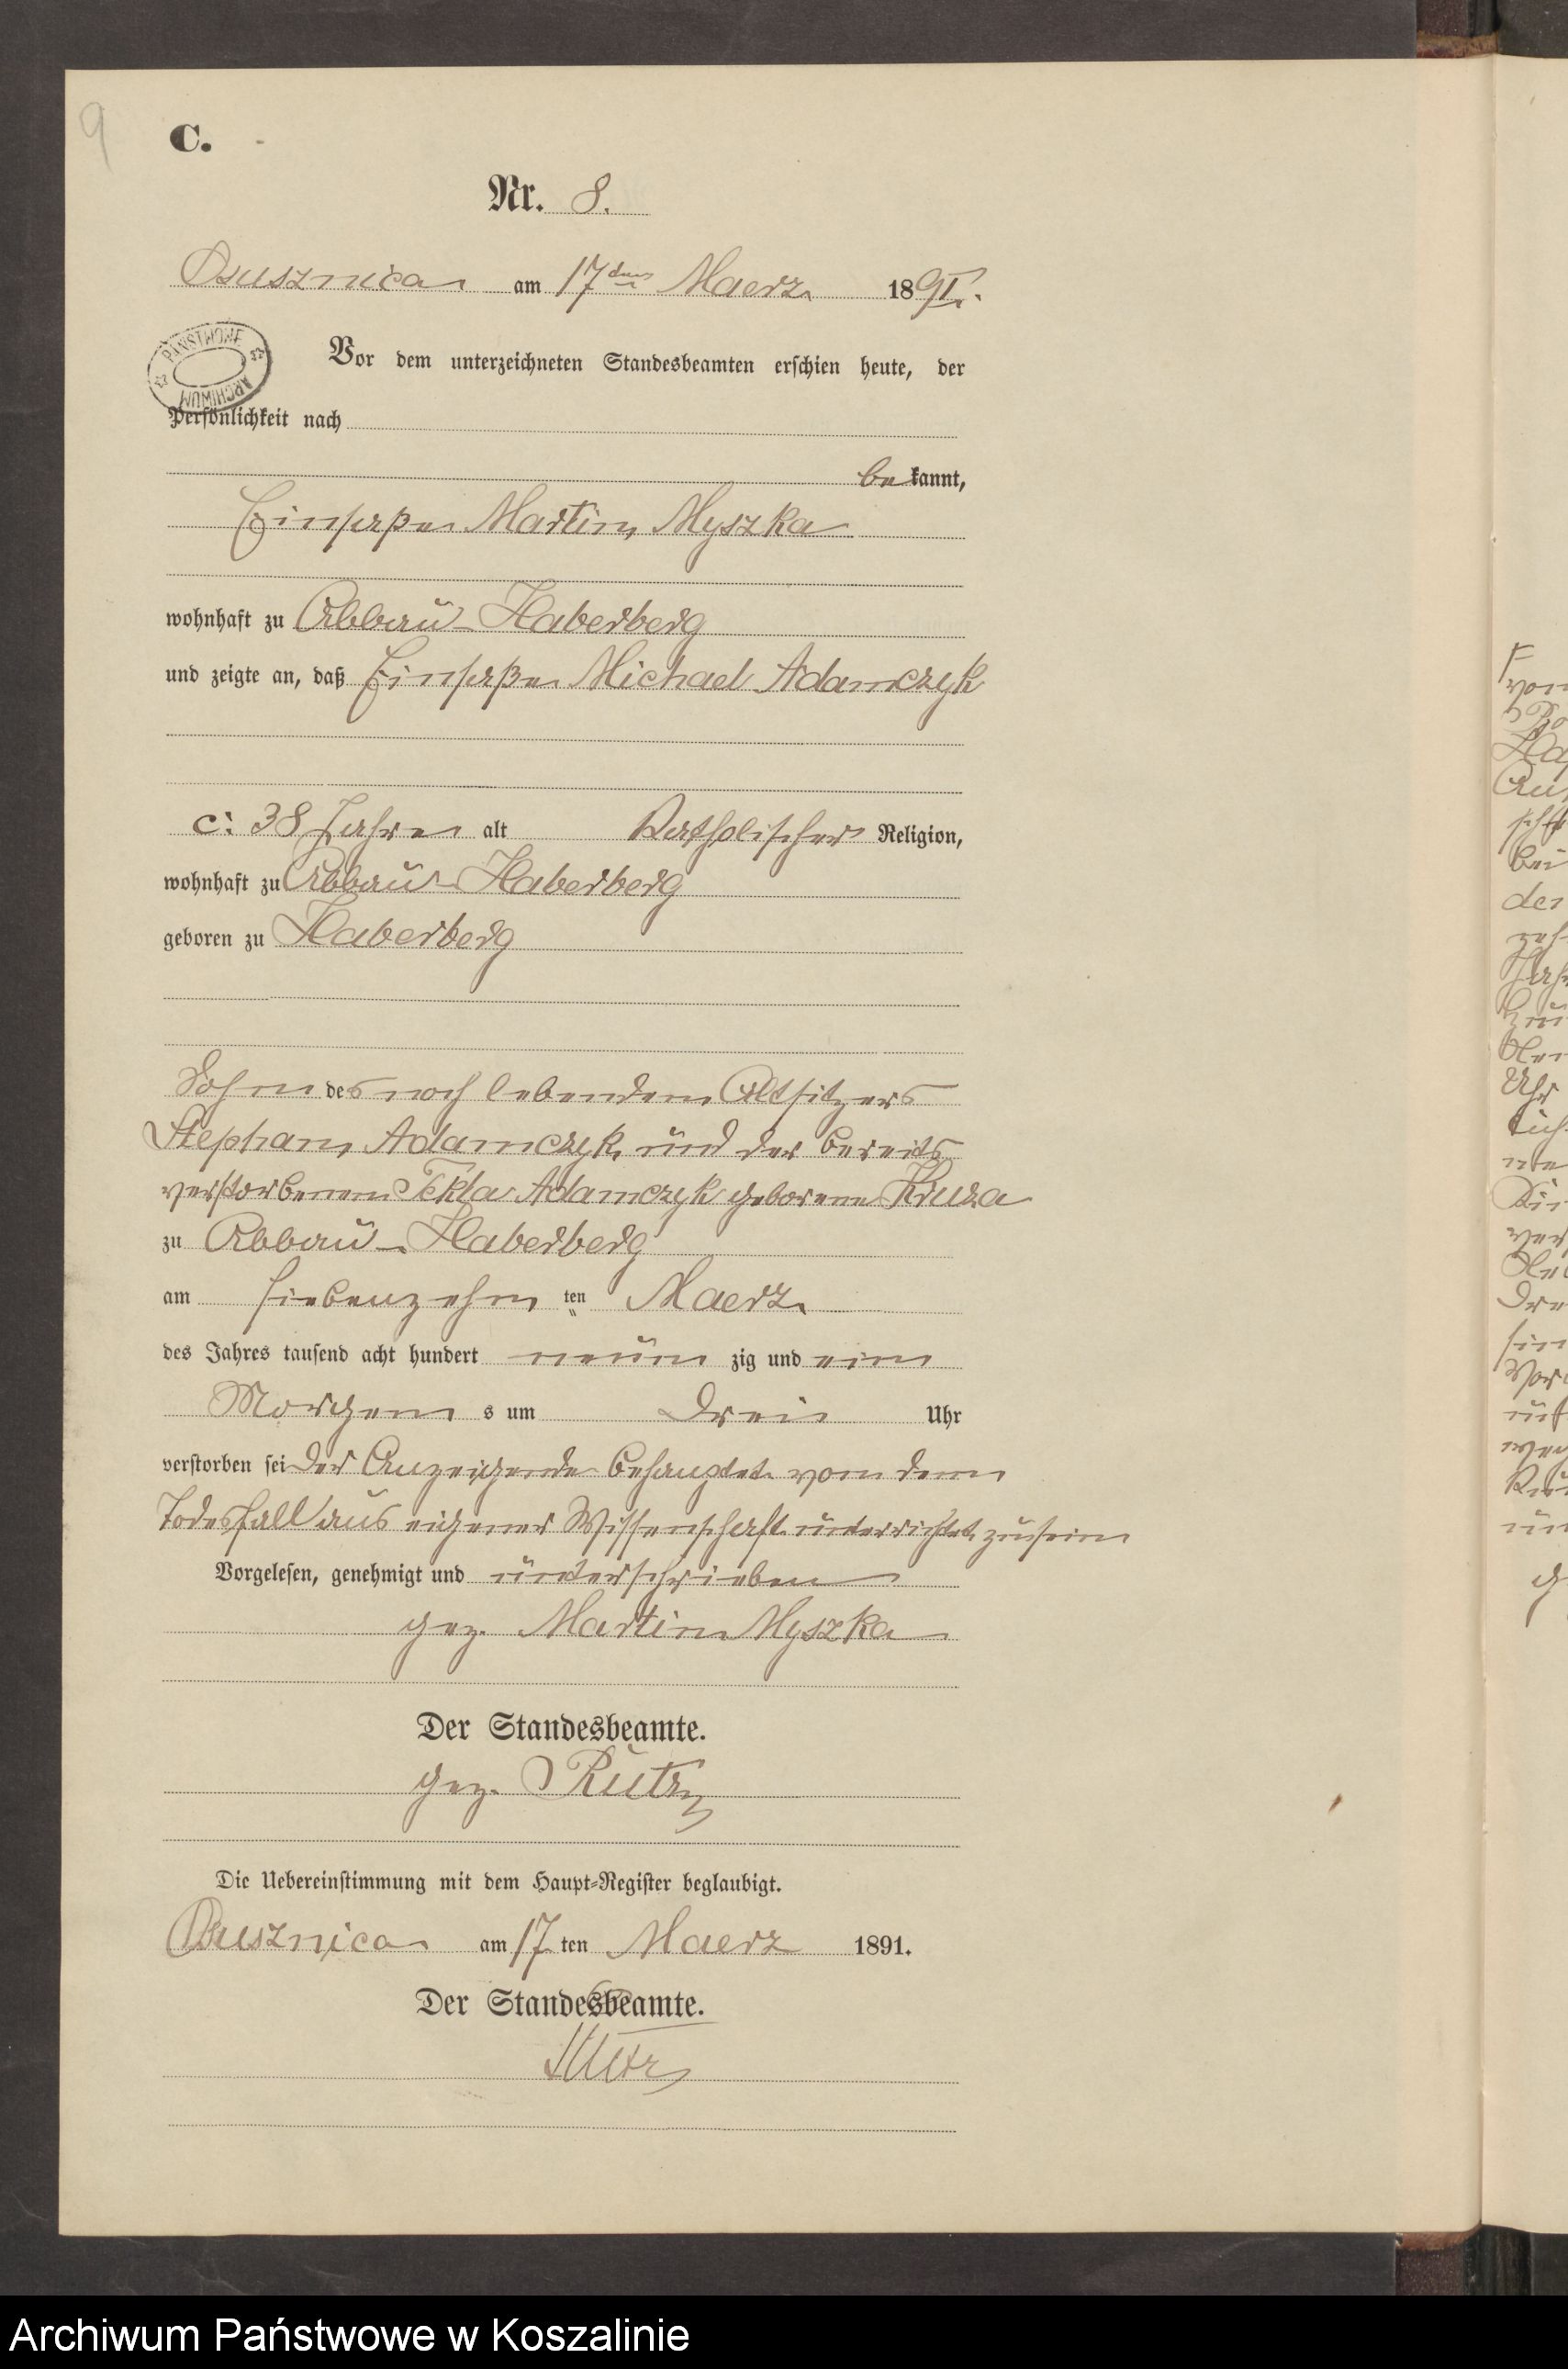 9
C.
Nr. 8.
Osusznica am 17ten Maerz 1891.
PAŃSTWOWE ARCHIWUM
Vor dem unterzeichneten Standesbeamten erschien heute, der
Persönlichkeit nach
bekannt,
Einsaße Martin Myszka
wohnhaft zu Abbau-Haberberg
und zeigte an, daß Einsaße Michael Adamczyk
c: 38 Jahre alt Katholischer Religion,
wohnhaft zu Abbau-Haberberg
geboren zu Haberberg
Sohn des noch lebenden Altsitzers
Stephan Adamczyk und der bereits
verstorbenen Tekla Adamczyk geborene Kruza
zu Abbau-Haberberg
am siebenzehn ten Maerz
des Jahres tausend acht hundert neun zig und ein
Morgen s um drei Uhr
verstorben sei Der Anzeigende behauptet von dem
Todesfall aus eigener Wissenschaft unterrichtet zu sein
Vorgelesen, genehmigt und unterschrieben
gez. Martin Myszka
Der Standesbeamte.
gez. Rutz
Die Uebereinstimmung mit dem Haupt-Register beglaubigt.
Osusznica am 17 ten Maerz 1891.
Der Standesbeamte.
Rutz
Archiwum Państwowe w Koszalinie